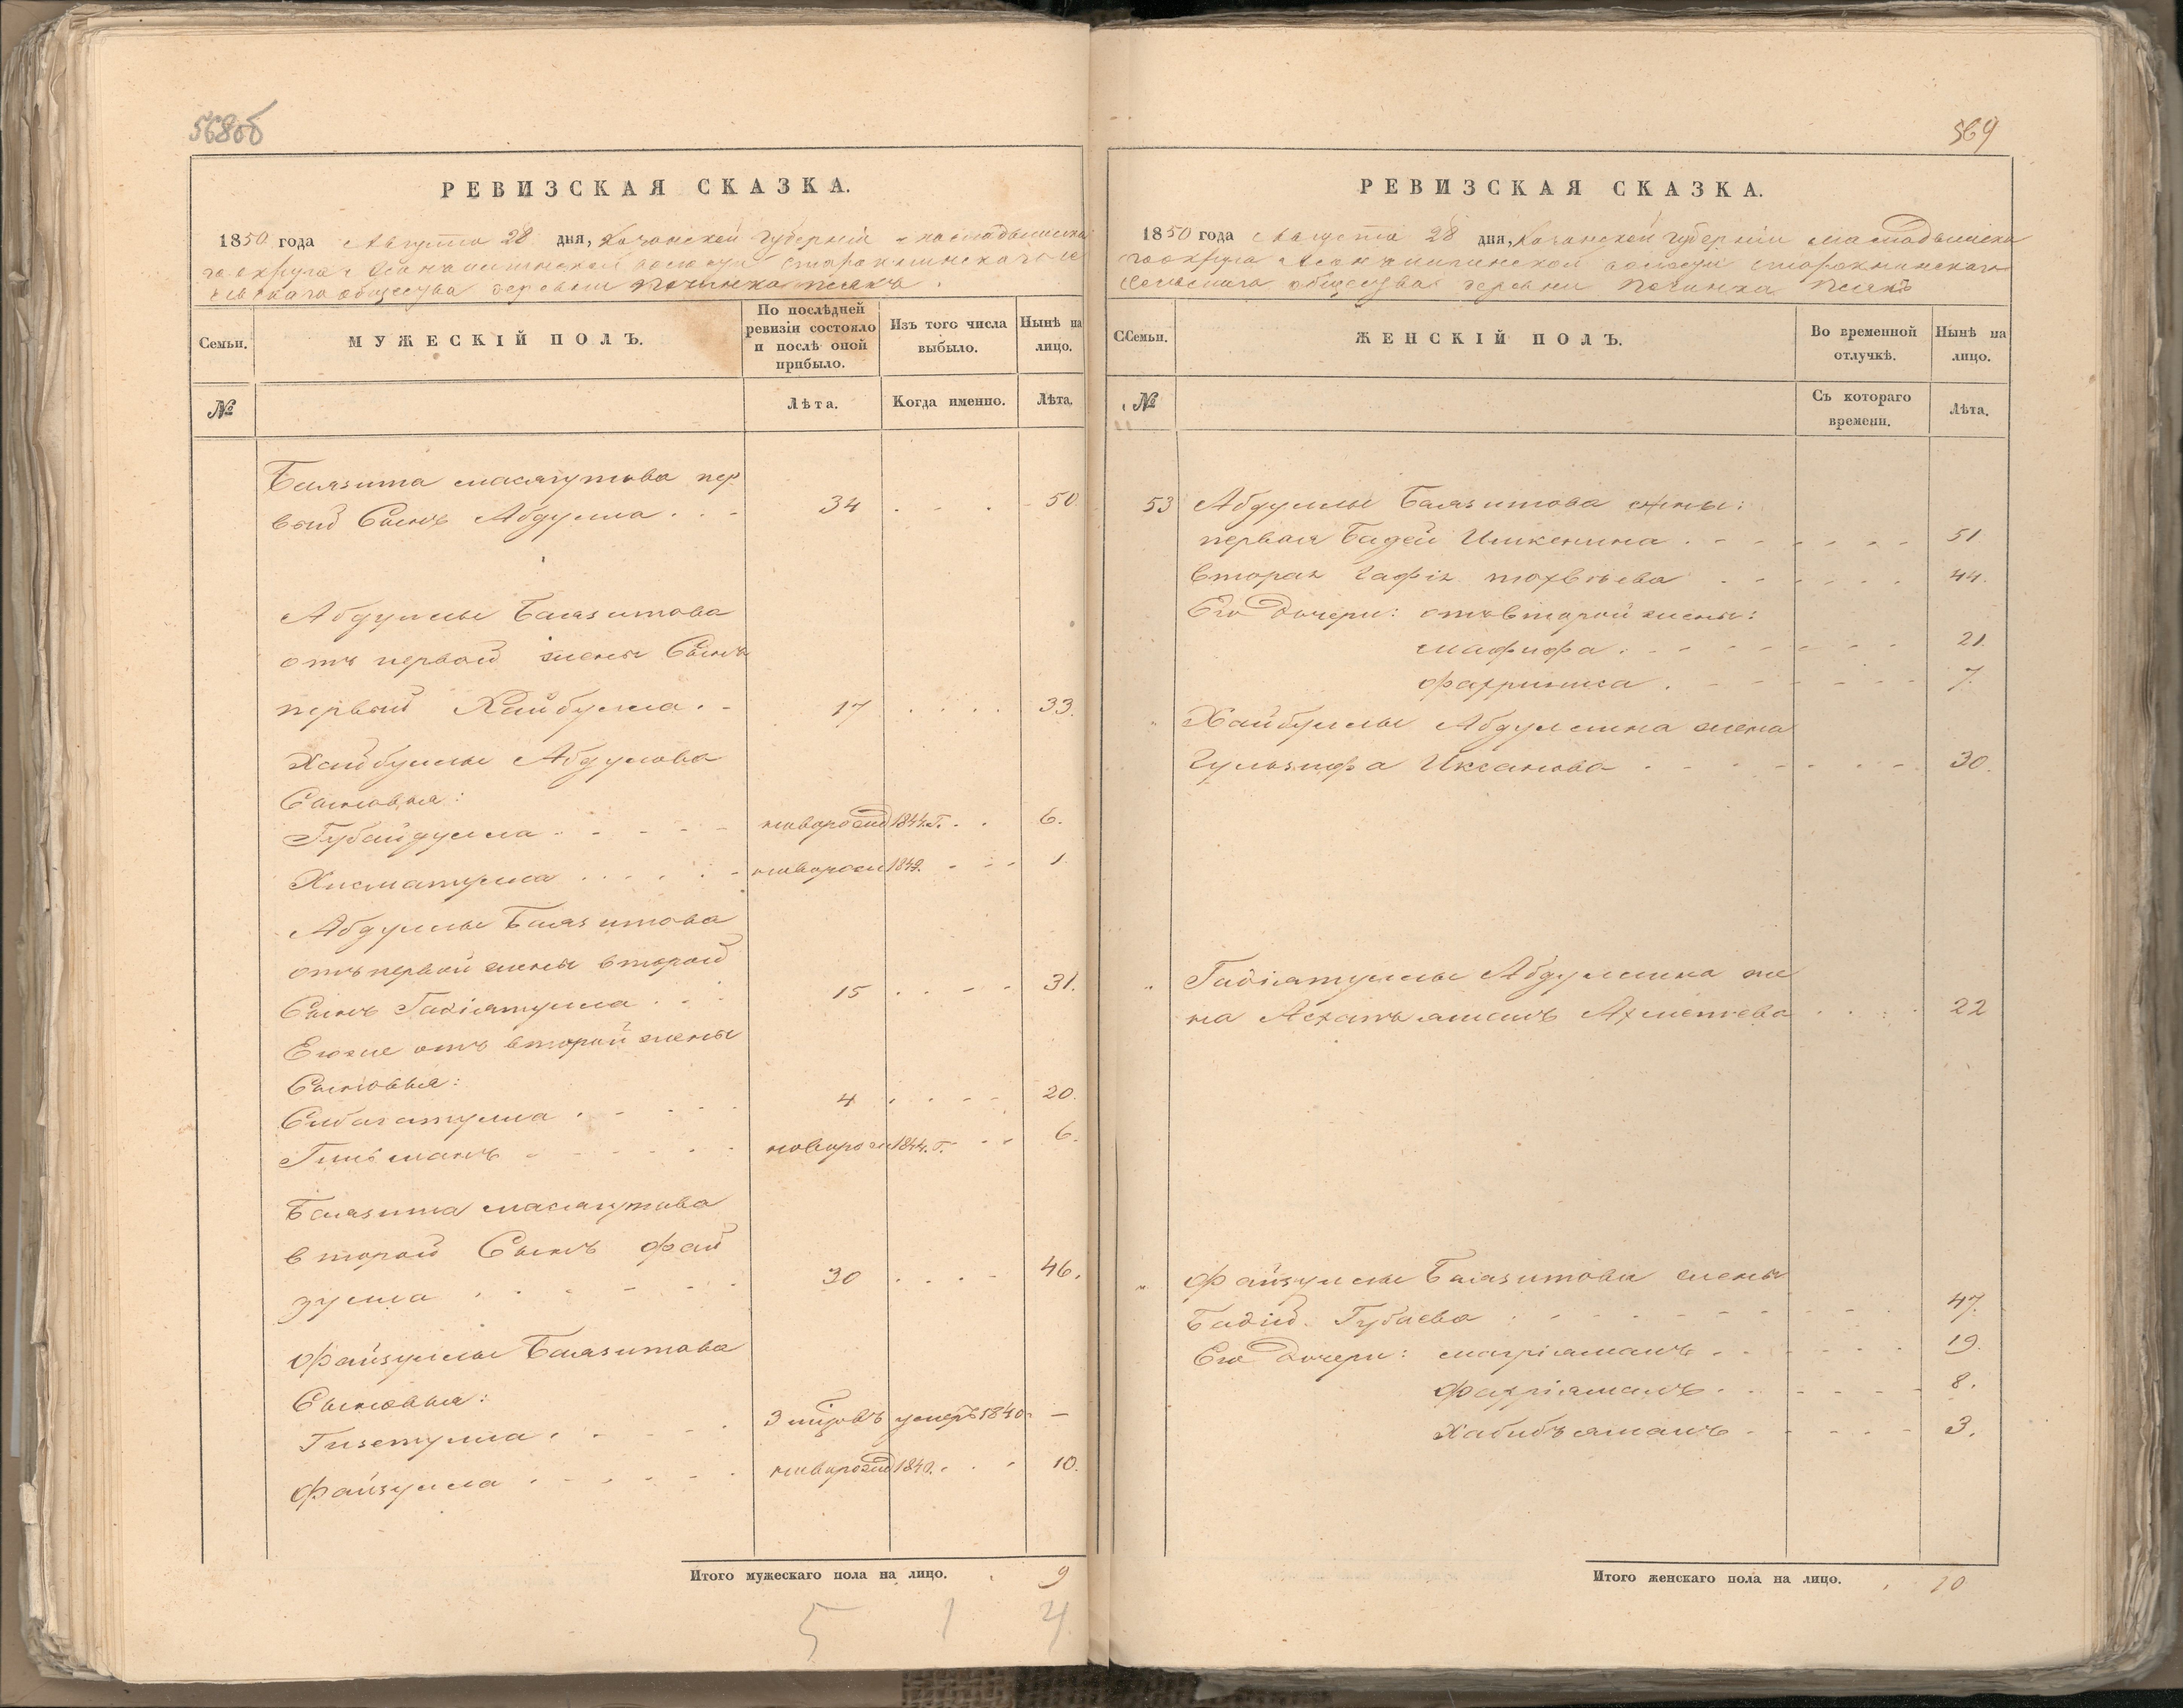 568об
РЕВИЗСКАЯ СКАЗКА.
1850 года Августа 28 дня, Казанской губернiи Мамадышска
го округа волости Старокнинского
общества деревни Починка
Семьи.
МУЖЕСКIЙ ПОЛЪ.
По послѣдней ревизiи состояло и послѣ оной прибыло.
Изъ того числа выбыло.
Нынѣ на лицо.
№
Лѣта.
Когда именно.
Лѣта.
Баязита Масягутова пер
вый Сынъ Абдулла . . . 34 . . . 50
Абдуллы Баязитова
отъ первой жены Сынъ
первый Хайбулла . - 17 . . . . 33.
Хайбуллы Абдулова
Сыновья:
Губайдулла . . . . новорожд 1844. г. . . 6.
Хисматулла . . . . новорож 1849. - - - 1
Абдуллы Баязитова
отъ первой жены второй
Сынъ Гадiатулла . . . 15 . . - - 31.
Его же отъ второй жены
Сыновья:
Сибагатулла . . . . 4 . . - - 20.
новорож 1844. г. - - 6.
Баязита Масягутова
второй Сынъ Фай
зулла . . . . . 30 . . . - 46.
Файзуллы Баязитова
Сыновья:
Гизетулла . . . . умеръ 1840 —
Файзулла . . . . новорожд 1840. . . 10.
Итого мужескаго пола на лицо. 9
5 1 4
569
РЕВИЗСКАЯ СКАЗКА.
1850 года Августа 28 дня, Казанской губернiи Мамадышска
го округа волости Старокнинскаго
Сельскаго общества деревни Починка
ССемьи.
ЖЕНСКIЙ ПОЛЪ.
Во временной отлучкѣ.
Нынѣ на лицо.
№
Съ котораго времени.
Лѣта.
53 Абдуллы Баязитова жены:
первая Бадей Ишкенина . - - - - - 51
вторая Гафiя Тохвѣева . . . . . . 44.
Его Дочери: отъ второй жены:
Мафифа . - - - - - 21.
Фахриниса . - - - - - 7.
" Хайбуллы Абдуллина жена
Гульзифа Иксанова . - - - - - 30.
" Гадiатуллы Абдуллина же
на Асхапъямалъ Ахметева . . . . 22
" Файзуллы Баязитова жены
Бадiй Губаева . . - - - - 47.
Его Дочери: Магрiямалъ . - - - - 19.
Фахрiямалъ . . - - - - 8.
Хабибъямалъ . - - - - 3.
Итого женскаго пола на лицо. 10